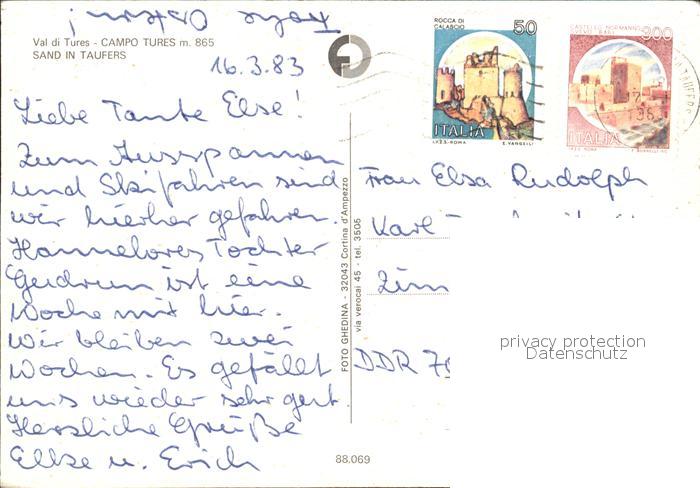 Frohe Ostern!
Val di Tures - CAMPO TURES m. 865
SAND IN TAUFERS
16.3.83
Liebe Tante Else!
Zum Ausspannen
und Skifahren sind
wir hierher gefahren.
Hannelores Tochter
Gudrun ist eine
Woche mit hier.
Wir bleiben zwei
Wochen. Es gefällt
uns wieder sehr gut.
Herzliche Grüße
Ellse u. Erich
FOTO GHEDINA - 32043 Cortina d'Ampezzo
via verocai 45 - tel. 3505
88.069
ROCCA DI
CALASCIO
50
ITALIA
I.P.Z.S. - ROMA
E. VANGELLI
CASTELLO NORMANNO
SVEVO BARI
300
ITALIA
Frau Elsa Rudolph
Karl
Zim
DDR 70
privacy protection
Datenschutz